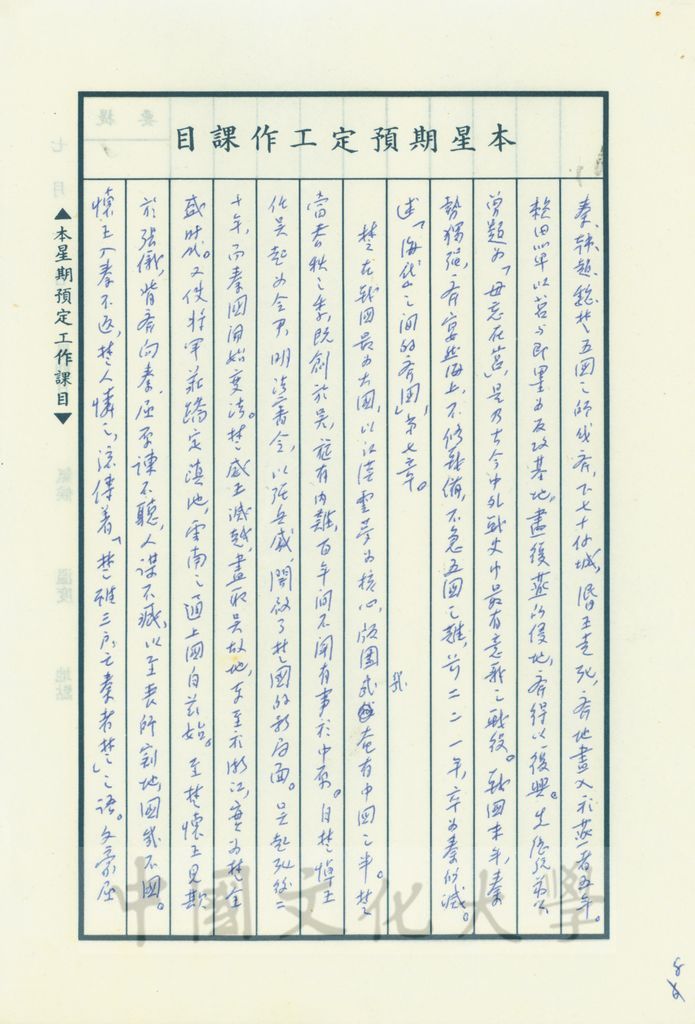 本星期預定工作課目
秦、韓、趙、魏、楚五國之師伐齊，下七十餘城，湣王走死，齊地盡入於燕者五年。
賴田單以莒與即墨為反攻基地，盡復燕所侵地，齊得以復興。先總統蔣公
曾題為「毋忘在莒」，是乃古今中外戰史中最有意義之戰役。戰國末年，秦
勢獨強，齊宴然海上，不修戰備，不急五國之難，前二二一年，卒為秦所滅。
述「海岱之間的齊國」，第七章。
楚在戰國最為大國，以江漢雲夢為核心，版圖幾奄有中國之半。楚
當春秋之季，既創於吳，旋有內難，百年間不聞有事於中原。自楚悼王
任吳起為令尹，明法審令，以強兵威，開啟了楚國的新局面。吳起死後二
十年，而秦國開始變法。楚威王滅越，盡取吳故地，東至於浙江，實為楚全
盛時代。又使將軍莊蹻定滇池，雲南之通上國自茲始。至楚懷王見欺
於張儀，背齊向秦，屈原諫不聽，人謀不臧，以至喪師割地，國幾不國。
懷王入秦不返，楚人憐之，流傳着「楚雖三戶亡秦者楚」之語。文豪屈
▲本星期預定工作課目▼
要提
七
月
氣候
溫度
地點
中國文化大學